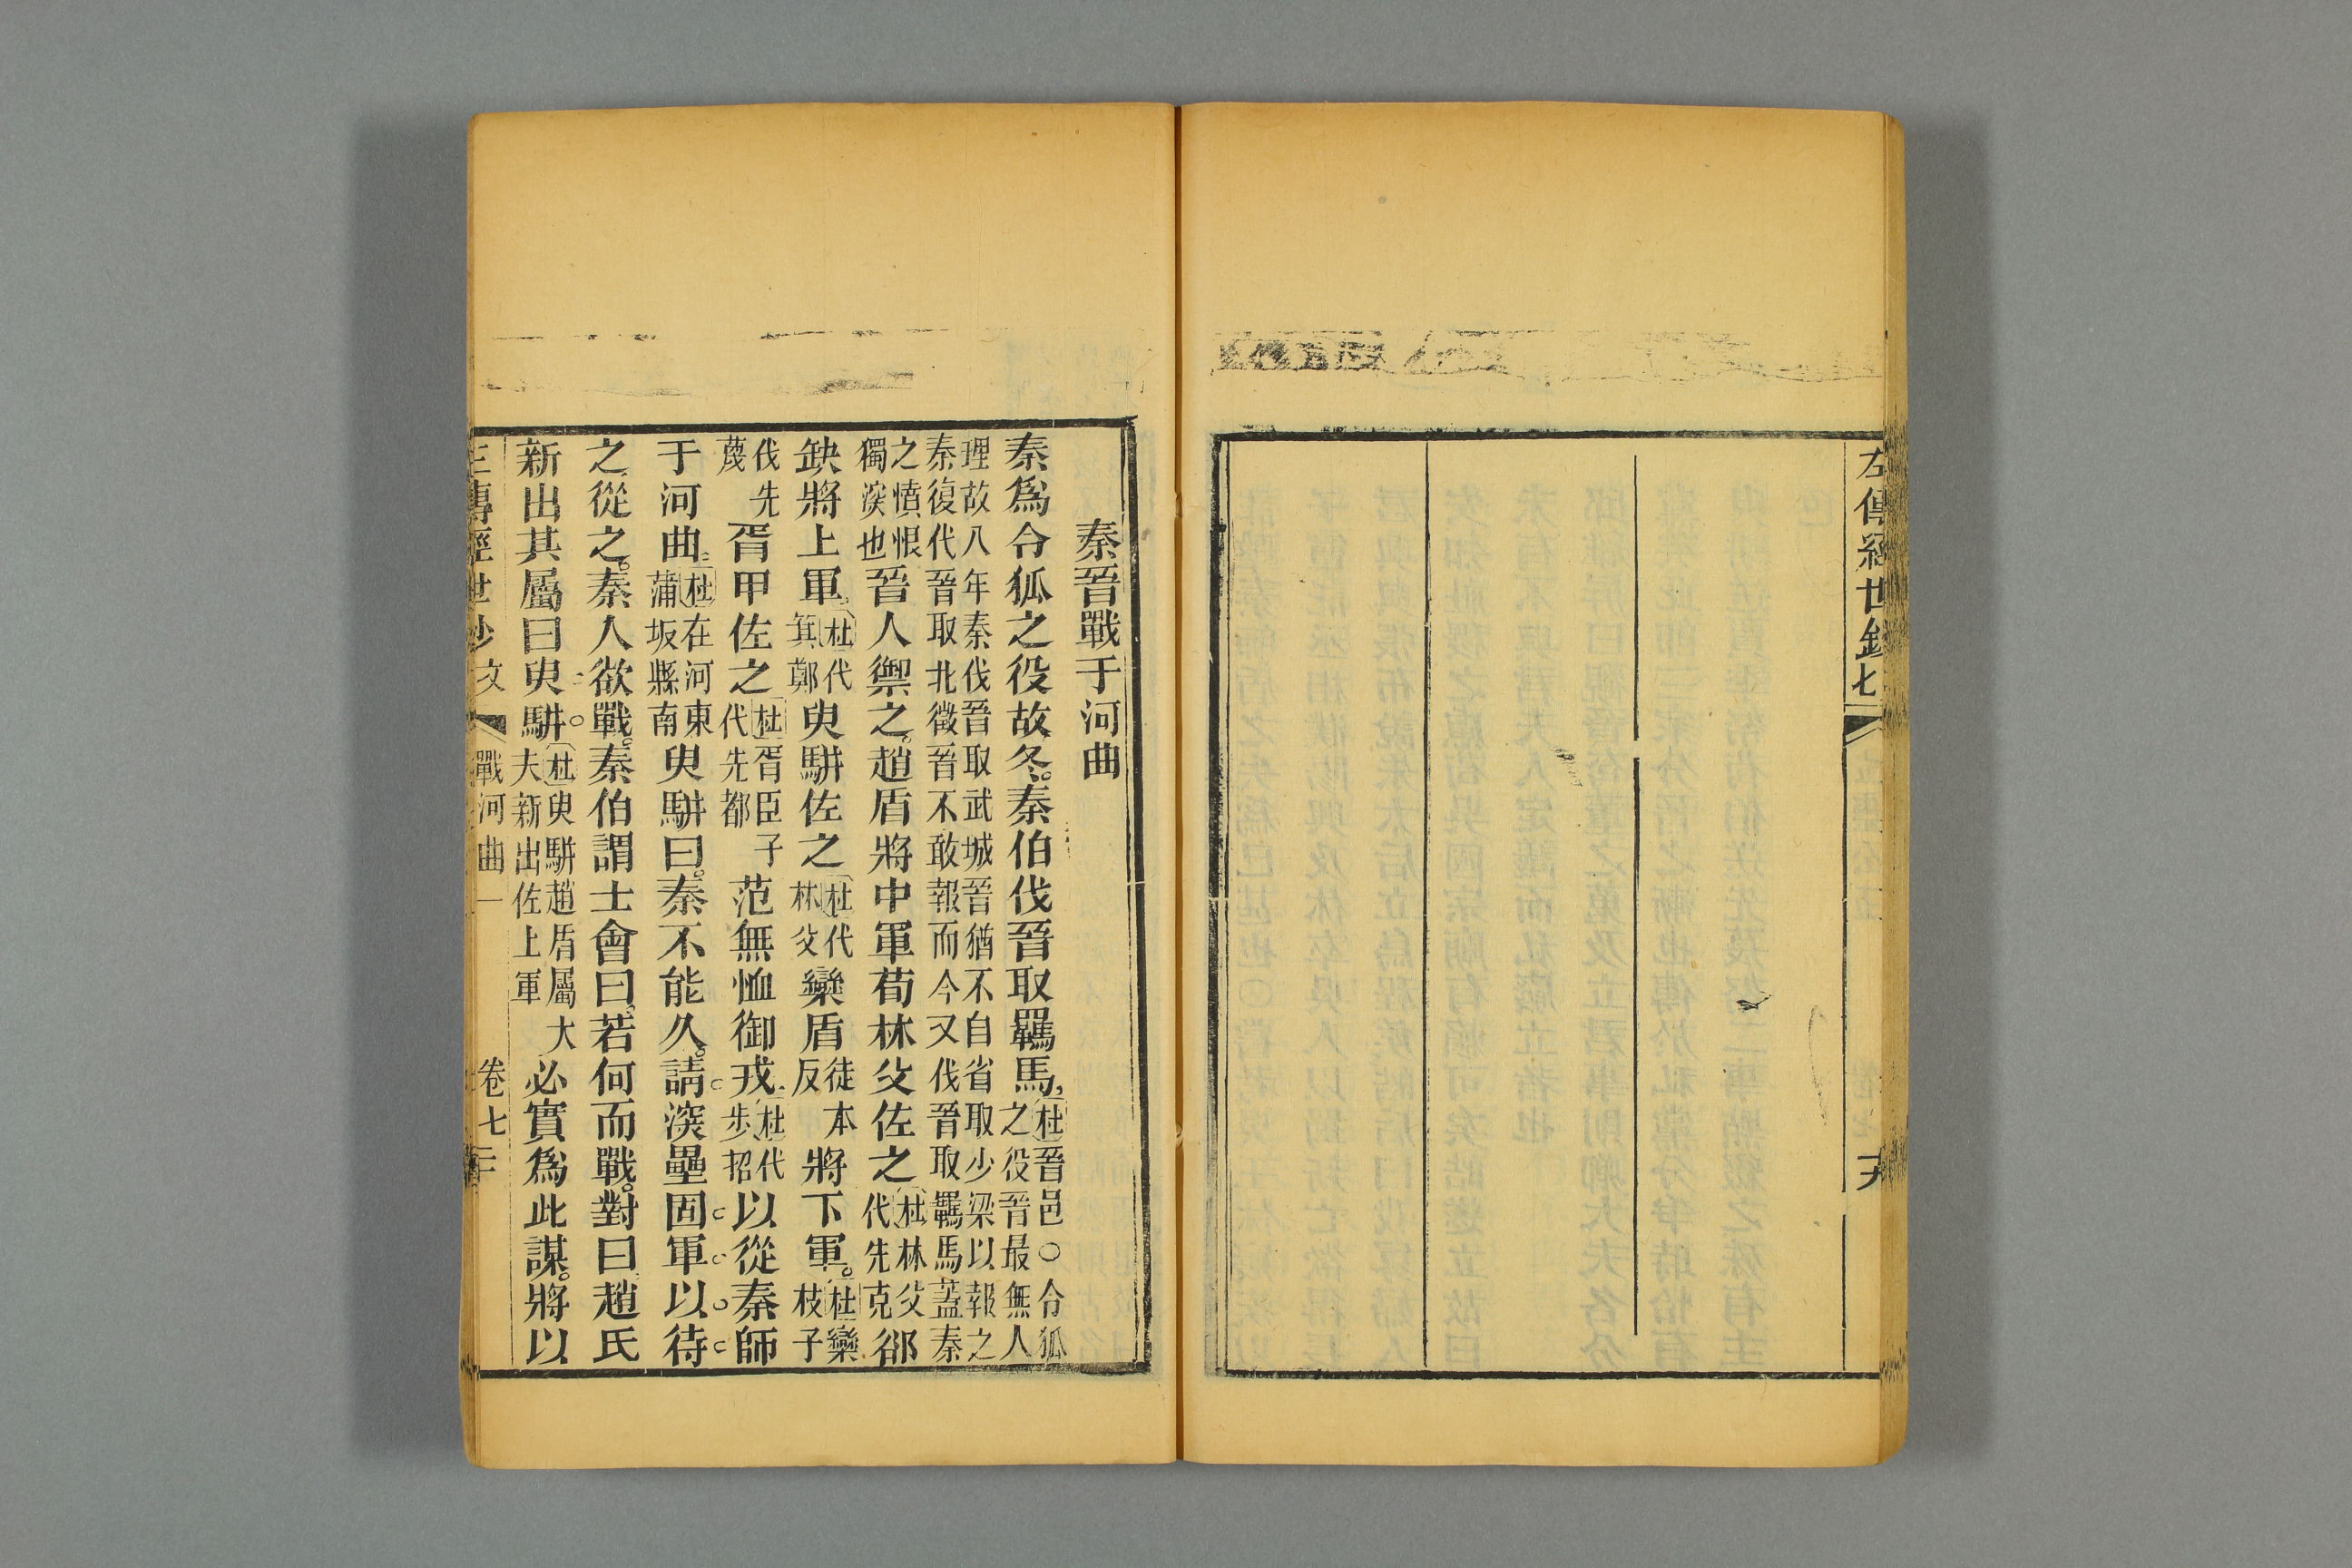 左傳經世鈔七
秦晉戰于河曲
秦爲令狐之役故冬。秦伯伐晉取羈馬、杜晉邑○令狐之役晉最無人
理故八年秦伐晉取武城晉猶不自省取少梁以報之
秦復伐晉取北徵晉不敢報而今又伐晉取羈馬蓋秦
之憤恨獨深也晉人禦之。趙盾將中軍荀林父佐之杜林父代先克郤
缺將上軍。杜代箕鄭臾駢佐之杜代林父欒盾徒本反將下軍。杜欒枝子
伐先蔑胥甲佐之杜胥臣子代先都范無恤御戎、杜代步招以從秦師
于河曲、杜在河東蒲坂縣南臾駢曰。秦不能久。請深壘固軍以待
之、從之。秦人欲戰。秦伯謂士會曰、若何而戰。對曰趙氏
新出其屬曰臾駢。杜臾駢趙盾屬大夫新出佐上軍必實爲此謀。將以
傳經世鈔 文 戰河曲一 卷七